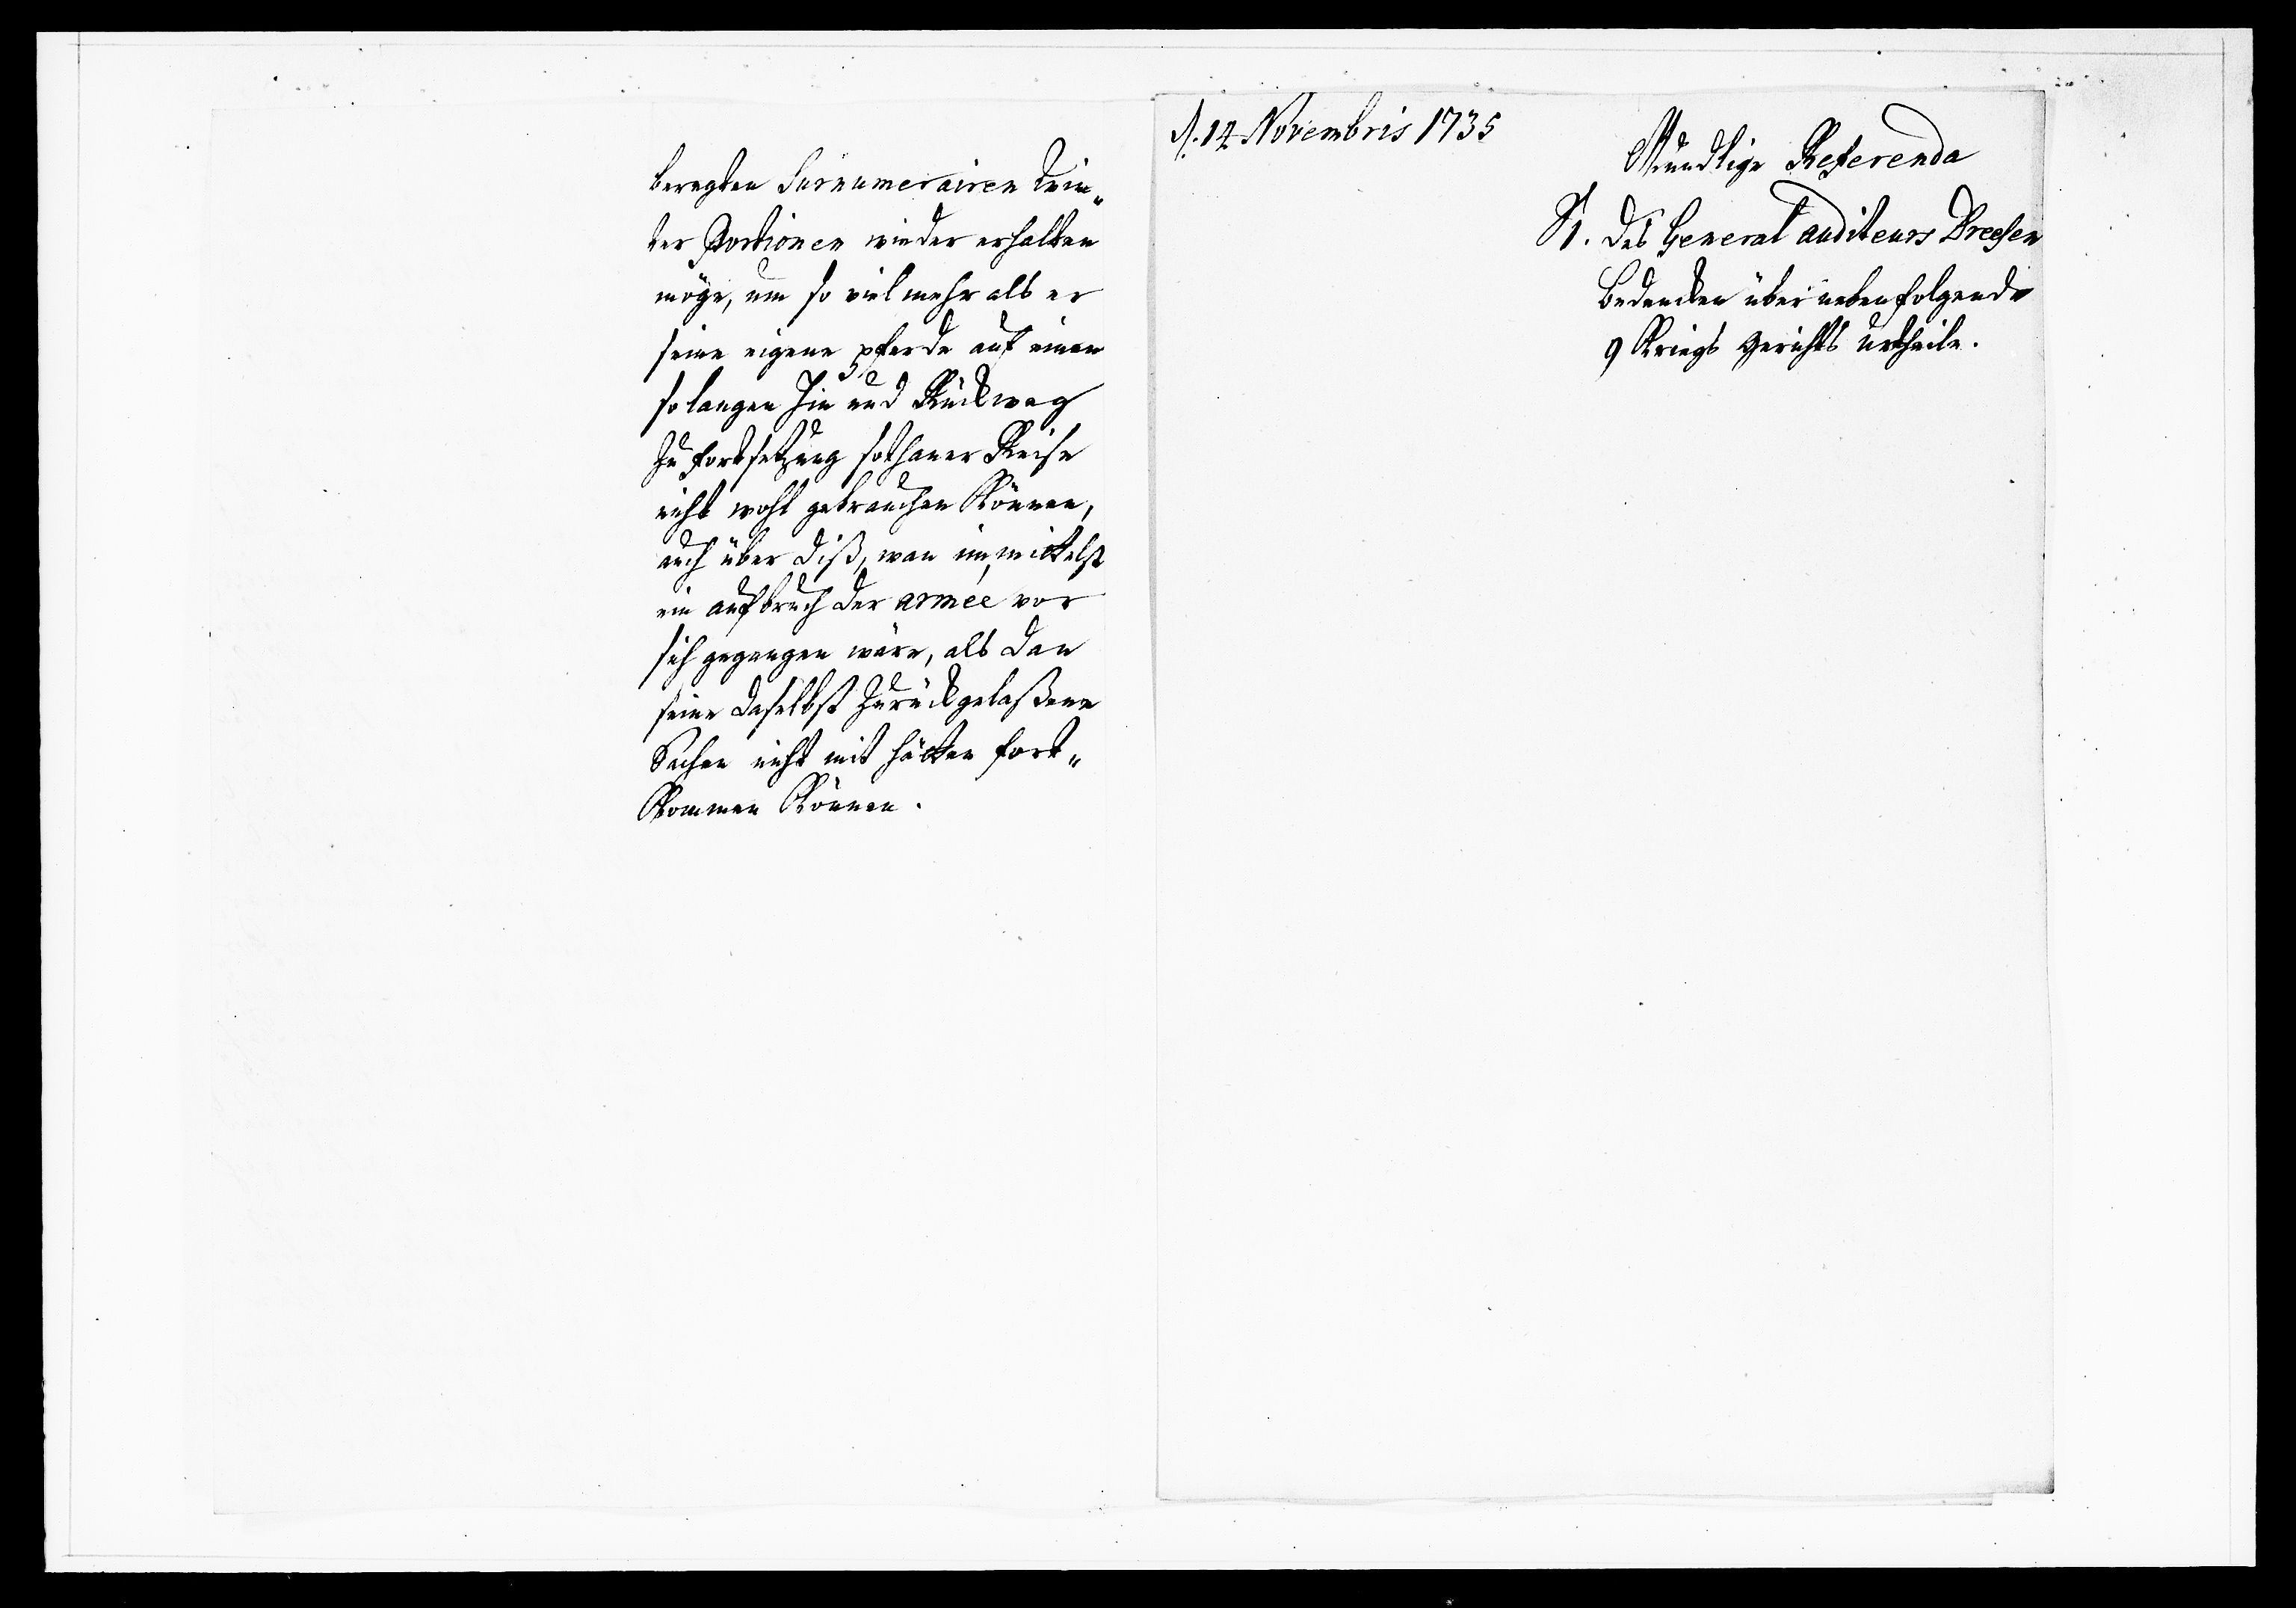 beregten Surnumerairen Win„
ter Portionen wieder erhalten
möge, um so viel mehr als er
seine eigene pferde auf einen
so langen Hin und Rückweg
zu fortsetzung sothaner Reise
nicht wohl gebrauchen Können,
auch über diß, wan immittelst
ein aufbruch der armée vor
sich gegangen wäre, als dan
seine daselbst zurückgelaßene
Sachen nicht mit hätten fort„
Kommen Können.
d. 14 Novembris 1735
Mündlige Referenda
1. des General auditeurs Dreesen
bedencken über nebenfolgende
9 Kriegs gerichts urtheile.